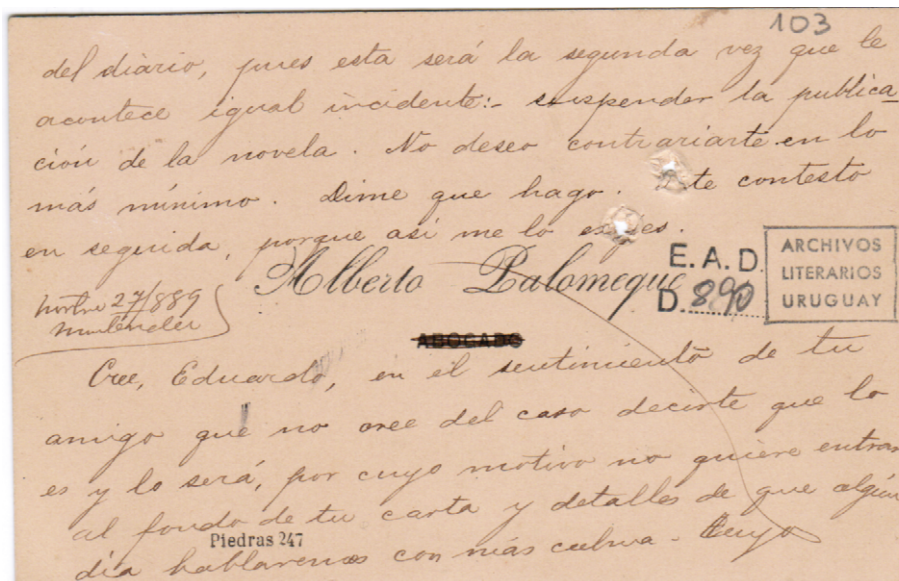 103
del diario, pues esta será la segunda vez que le
acontece igual incidente:- suspender la publica
ción de la novela. No deseo contrariarte en lo
más mínimo. Dime que hago. te contesto
en seguida, porque así me lo exijes.
Alberto Palomeque
E.A.D.
D. 890
ARCHIVOS
LITERARIOS
URUGUAY
27/889
ABOGADO
Cree, Eduardo, en el sentimiento de tu
amigo que no cree del caso decirte que lo
es y lo será, por cuyo motivo no quiere entrar
al fondo de tu carta y detalles de que algún
Piedras 247
día hablaremos con más calma. Tuyo